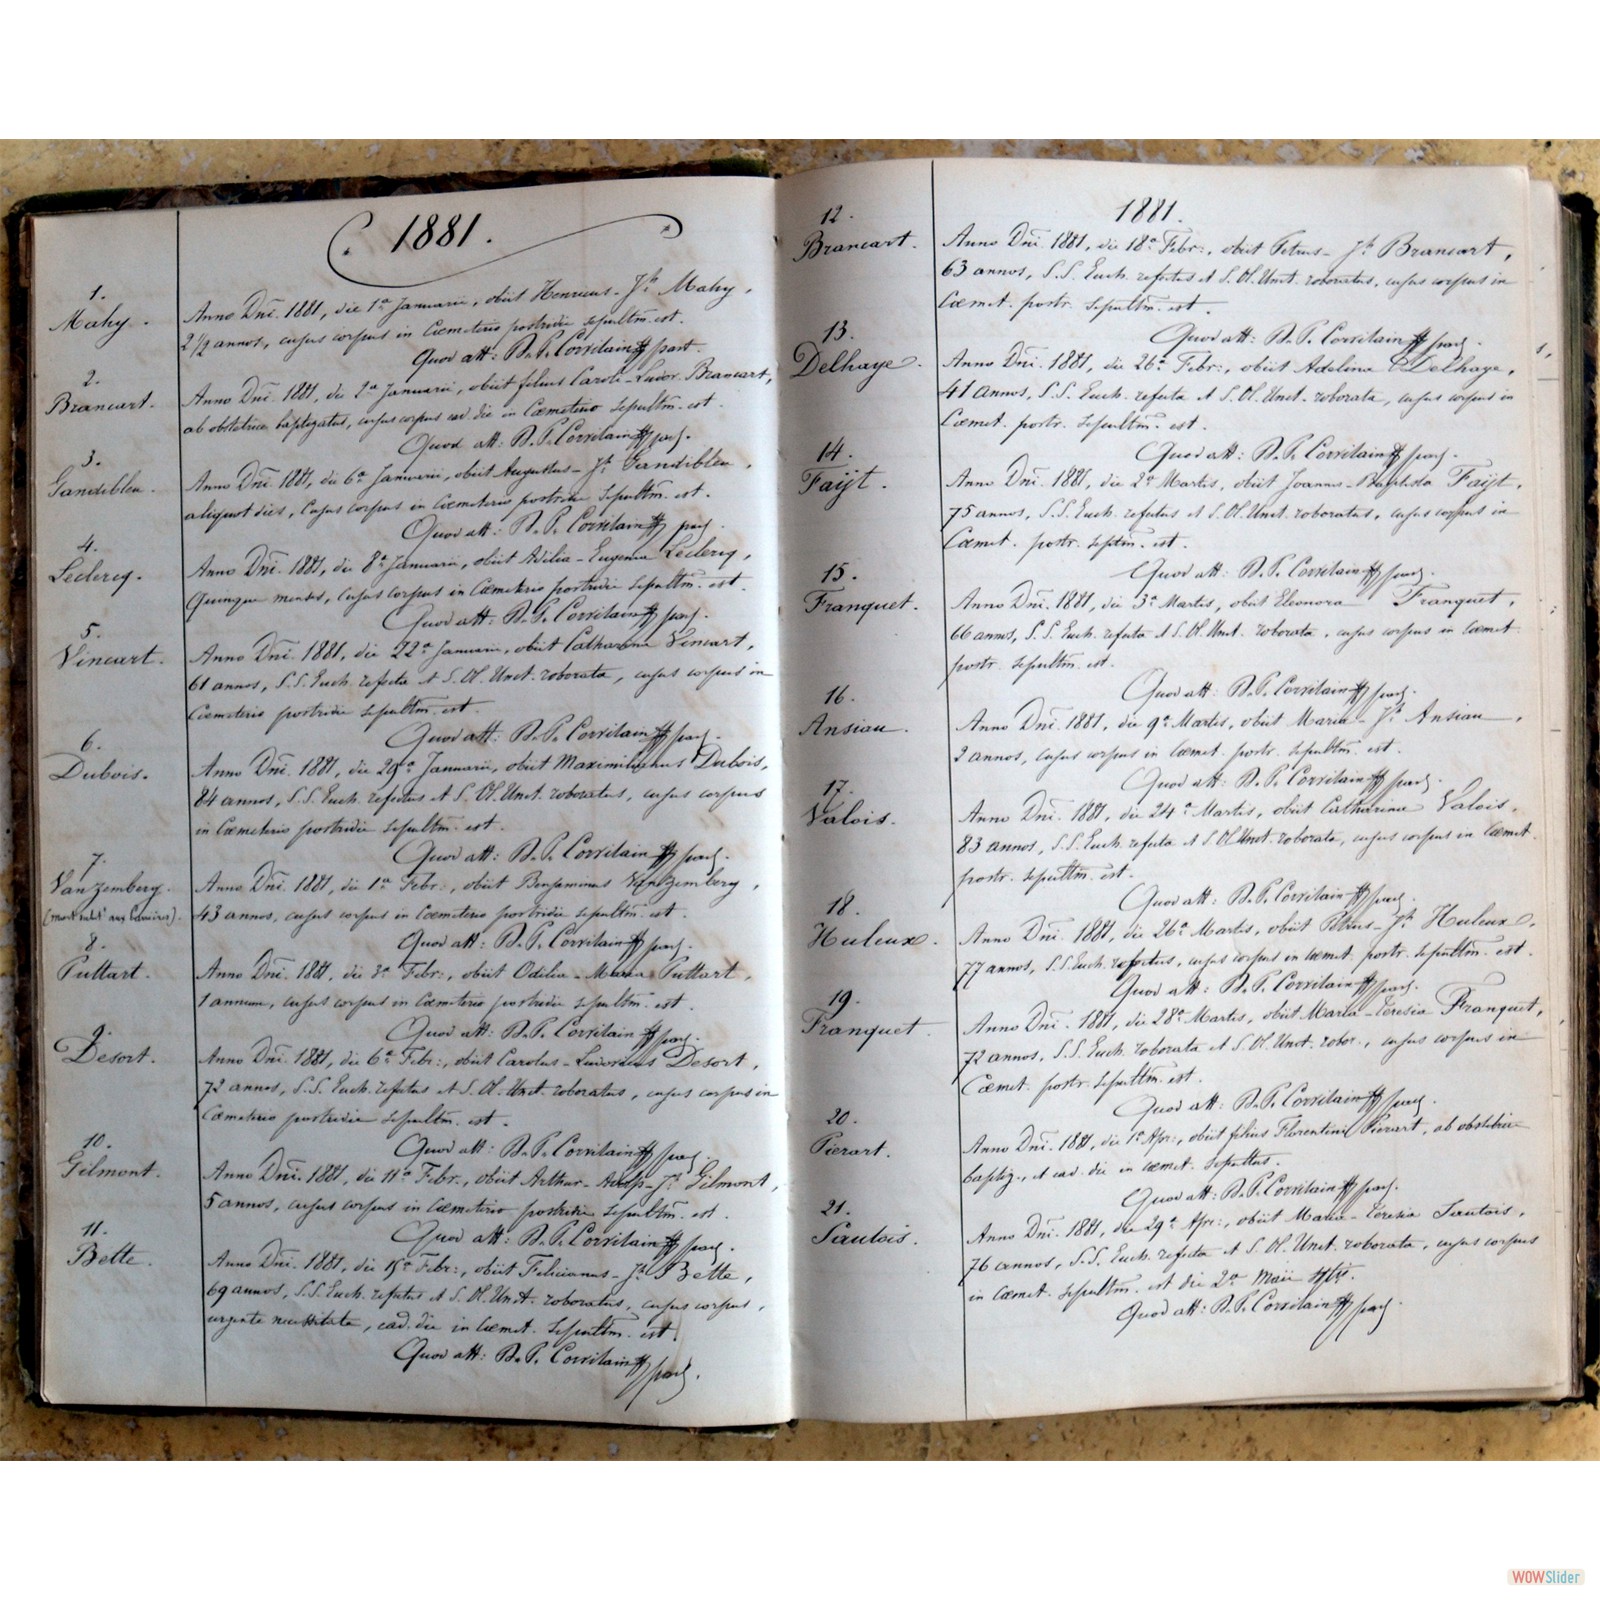 1881.
1.
Mahy.
Anno Dni. 1881, die 1a Januarii, obiit Henricus-Jh Mahy,
2 1/2 annos, cujus corpus in Cœmeterio postridie sepultm. est.
Quod att: B. P. Corvilain past.
2.
Brancart.
Anno Dni. 1881, die 2a Januarii, obiit filius Caroli-Ludov. Brancart,
ab obstetrice baptizatus, cujus corpus ead. die in Cœmeterio sepultm. est.
Quod att: B. P. Corvilain past.
3.
Gandibleu.
Anno Dni. 1881, die 6a Januarii, obiit Augustus-Jh Gandibleu,
aliquot dies, cujus corpus in Cœmeterio postridie sepultm. est.
Quod att: B. P. Corvilain past.
4.
Leclercq.
Anno Dni. 1881, die 8a Januarii, obiit Adilia-Eugenia Leclercq,
quinque menses, cujus corpus in Cœmeterio postridie sepultm. est.
Quod att: B. P. Corvilain past.
5.
Vincart.
Anno Dni. 1881, die 22a Januarii, obiit Catharina Vincart,
61 annos, S.S. Euch. refecta et S. Ol. Unct. roborata, cujus corpus in
Cœmeterio postridie sepultm. est.
Quod att: B. P. Corvilain past.
6.
Dubois.
Anno Dni. 1881, die 29a Januarii, obiit Maximilianus Dubois,
84 annos, S.S. Euch. refectus et S. Ol. Unct. roboratus, cujus corpus
in Cœmeterio postridie sepultm. est.
Quod att: B. P. Corvilain past.
7.
Vanzemberg.
(mort subit aux
Anno Dni. 1881, die 1a Febr:, obiit Benjaminus Vanzemberg,
43 annos, cujus corpus in Cœmeterio postridie sepultm. est.
Quod att: B. P. Corvilain past.
8.
Puttart.
Anno Dni. 1881, die 3a Febr:, obiit Odilia-Maria Puttart,
1 annum, cujus corpus in Cœmeterio postridie sepultm. est.
Quod att: B. P. Corvilain past.
9.
Desort.
Anno Dni. 1881, die 6a Febr:, obiit Carolus-Ludovicus Desort,
72 annos, S.S. Euch. refectus et S. Ol. Unct. roboratus, cujus corpus in
Cœmeterio postridie sepultm. est.
Quod att: B. P. Corvilain past.
10.
Gilmont.
Anno Dni. 1881, die 11a Febr., obiit Arthur-Adlp-Jh Gilmont,
5 annos, cujus corpus in Cœmeterio postridie sepultm. est.
Quod att: B. P. Corvilain past.
11.
Bette.
Anno Dni. 1881, die 15a Febr:, obiit Felicianus-Jh Bette,
69 annos, S.S. Euch. refectus et S. Ol. Unct. roboratus, cujus corpus,
urgente necessitate, ead. die in Cœmet. sepultm. est.
Quod att: B. P. Corvilain past.
1881.
12.
Brancart.
Anno Dni. 1881, die 18a Febr:, obiit Petrus-Jh Brancart,
63 annos, S.S. Euch. refectus et S. Ol. Unct. roboratus, cujus corpus in
Cœmet. postr. sepultm. est.
Quod att: B. P. Corvilain past.
13.
Delhaye.
Anno Dni. 1881, die 26a Febr:, obiit Adelina Delhaye,
41 annos, S.S. Euch. refecta et S. Ol. Unct. roborata, cujus corpus in
Cœmet. postr. sepultm. est.
Quod att: B. P. Corvilain past.
14.
Faÿt.
Anno Dni. 1881, die 2a Martis, obiit Joannes-Baptista Faÿt,
75 annos, S.S. Euch. refectus et S. Ol. Unct. roboratus, cujus corpus in
Cœmet. postr. septm. est.
Quod att: B. P. Corvilain past.
15.
Franquet.
Anno Dni. 1881, die 3a Martis, obiit Eleonora Franquet,
66 annos, S.S. Euch. refecta et S. Ol. Unct. roborata, cujus corpus in Cœmet.
postr. sepultm. est.
Quod att: B. P. Corvilain past.
16.
Ansiau.
Anno Dni. 1881, die 9a Martis, obiit Maria-Jh Ansiau,
2 annos, cujus corpus in Cœmet. postr. sepultm. est.
Quod att: B. P. Corvilain past.
17.
Valois.
Anno Dni. 1881, die 24a Martis, obiit Catharina Valois,
83 annos, S.S. Euch. refecta et S. Ol. Unct. roborata, cujus corpus in Cœmet.
postr. sepultm. est.
Quod att: B. P. Corvilain past.
18.
Huleux.
Anno Dni. 1881, die 26a Martis, obiit Petrus-Jh Huleux,
77 annos, S.S. Euch. refectus, cujus corpus in cœmet. postr. sepultm. est.
Quod att: B. P. Corvilain past.
19.
Franquet.
Anno Dni. 1881, die 28a Martis, obiit Maria-Teresia Franquet,
72 annos, S.S. Euch. roborata et S. Ol. Unct. robor., cujus corpus in
Cœmet. postr. sepultm. est.
Quod att: B. P. Corvilain past.
20.
Pierart.
Anno Dni. 1881, die 1a Apr:, obiit filius Florentini Pierart, ab obstetrice
baptiz., et ead. die in cœmet. sepultus.
Quod att: B. P. Corvilain past.
21.
Sautois.
Anno Dni. 1881, die 29a Apr:, obiit Maria-Teresia Sautois,
76 annos, S.S. Euch. refecta et S. Ol. Unct. roborata, cujus corpus
in Cœmet. sepultm. est die 2a Maii
Quod att: B. P. Corvilain past.
WOWSlider